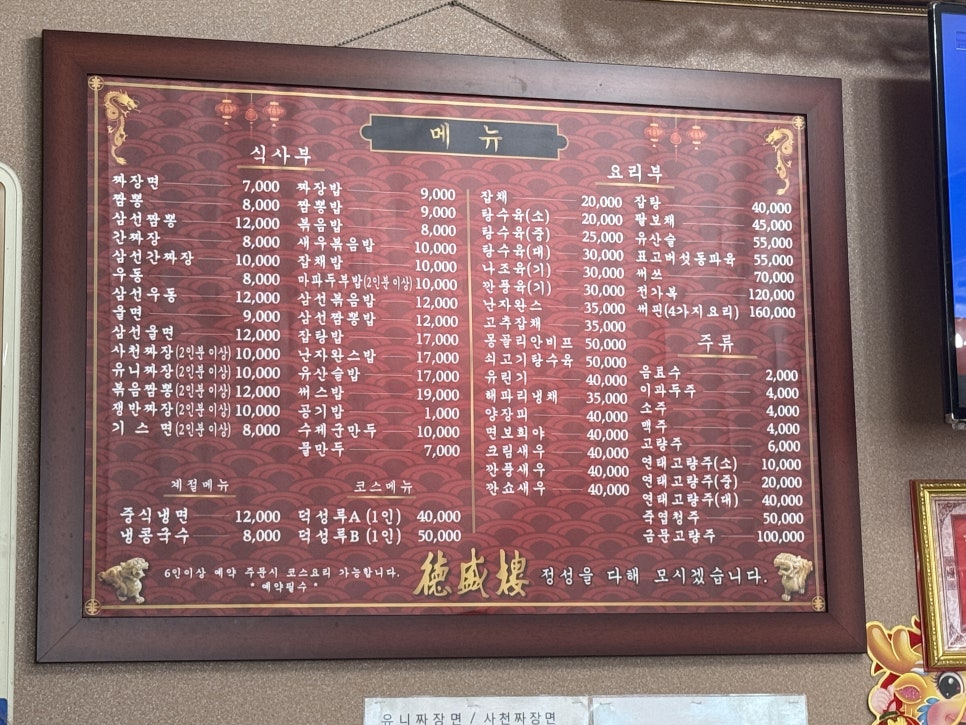 메뉴
식사부
짜장면 7,000
짬뽕 8,000
삼선짬뽕 12,000
간짜장 8,000
삼선간짜장 10,000
우동 8,000
삼선우동 12,000
울면 9,000
삼선울면 12,000
사천짜장(2인분이상) 10,000
유니짜장(2인분이상) 10,000
볶음짬뽕(2인분이상) 12,000
쟁반짜장(2인분이상) 10,000
기스면(2인분이상) 8,000
짜장밥 9,000
짬뽕밥 9,000
볶음밥 8,000
새우볶음밥 10,000
잡채밥 10,000
마파두부밥(2인분이상) 10,000
삼선볶음밥 12,000
삼선짬뽕밥 12,000
잡탕밥 17,000
난자완스밥 17,000
유산슬밥 17,000
써스밥 19,000
공기밥 1,000
수제군만두 10,000
물만두 7,000
계절메뉴
중식냉면 12,000
냉콩국수 8,000
코스메뉴
덕성루A (1인) 40,000
덕성루B (1인) 50,000
요리부
잡채 20,000
탕수육(소) 20,000
탕수육(중) 25,000
탕수육(대) 30,000
나조육(기) 30,000
깐풍육(기) 30,000
난자완스 35,000
고추잡채 35,000
몽골리안비프 50,000
쇠고기탕수육 50,000
유린기 40,000
해파리냉채 35,000
양장피 40,000
면보희야 40,000
크림새우 40,000
깐풍새우 40,000
깐쇼새우 40,000
잡탕 40,000
팔보채 45,000
유산슬 55,000
표고버섯동파육 55,000
써쓰 70,000
전가복 120,000
써핀(4가지요리) 160,000
주류
음료수 2,000
이과두주 4,000
소주 4,000
맥주 4,000
고량주 6,000
연태고량주(소) 10,000
연태고량주(중) 20,000
연태고량주(대) 40,000
죽엽청주 50,000
금문고량주 100,000
6인이상 예약 주문시 코스요리 가능합니다.
* 예약필수 *
德盛樓 정성을 다해 모시겠습니다.
유니짜장면 / 사천짜장면